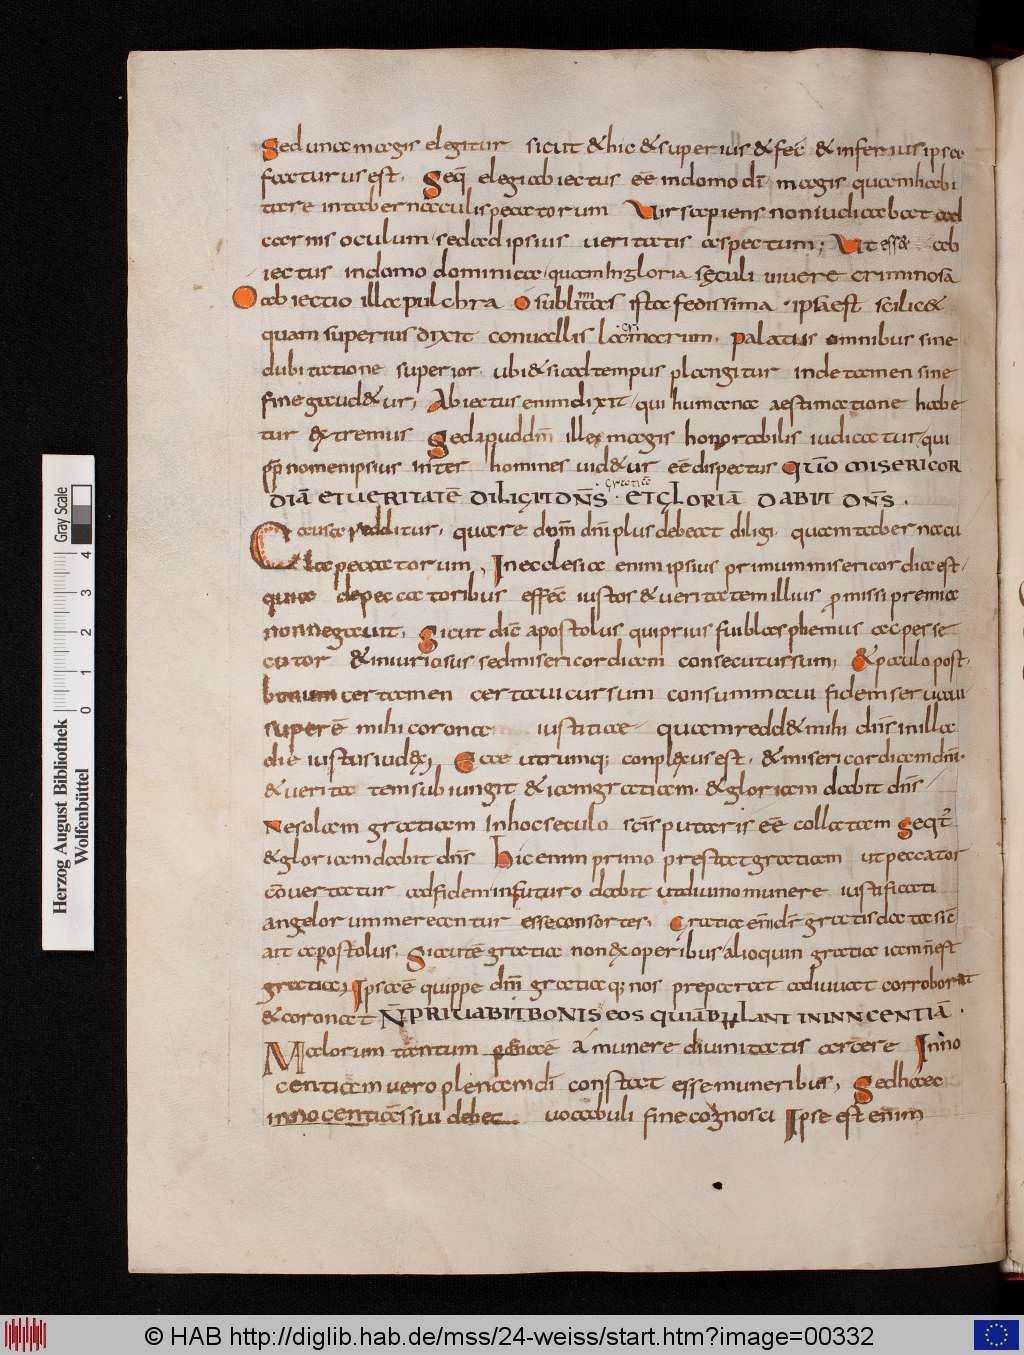 Sed una magis elegitur sicut & hic & superius & fec̄ & inferius ipsa
facturus est. Seq̄ elegi abiectus eē in domo dī magis quam habi
tare in tabernaculis peccatorum Vir sapiens non iudicabat ad
carnis oculum sed ad ipsius ueritatis aspectum; Ut esse ab
iectus in domo dominica quam In gloria sęculi uiuere criminosā
O abiectio illa pulchra O sublimitas ista fedissima . ipsa est scilic&
quam superius dixit conuallis lacrimarum. Palatus omnibus sine
dubitatione superior ubi & si ad tempus plangitur inde tamen sine
fine gaud&ur, Abiectus enim dixit qui humanae aestimatione habe
tur extremus Sed apud dm̄ ille magis honorabilis iudicatur qui
ꝓp nomen ipsius inter homines uid&ur eē dispectus QUŌ MISERICOR
DIĀ ET UERITATĒ DILIGIT DN̄S . ET GLORIĀ DABIT DN̄S .
gratiā
Causa redditur, quare dm̄ plus debeat diligi quam tabernacu
la peccatorum, In ecclesia enim ipsius primum misericordia est
quia de peccatoribus effec̄ iustos & ueritatem illius ꝓmissi premia
non negauit, Sicut dic̄ apostolus qui prius fui blasphemus ac perse
cutor & iniuriosus sed misericordiam consecutus sum, & paulo post
bonum certamen certaui cursum consummaui fidem seruaui
superē mihi corona iustitiae quam redd& mihi dn̄s in illa
die iustus iudex, Ecce utrumq; conplexus est . & misericordiam dn̄i
& ueritatem subiungit & iam gratiam . & gloriam dabit dn̄s
Ne solam gratiam In hoc seculo sc̄is putaris eē collatam Seqt̄
& gloriam dabit dn̄s Hic enim primo prestat gratiam ut peccator
cōuertatur ad fidem in futuro dabit ut diuino munere iustificati
angelorum mereantur esse consortes. Gratia eni dr̄ gratis data sic̄
ait apostolus, Si autē gratia non ex operibus alioquin gratia iam n̄ est
gratia, Ipsa ē quippe dn̄i gratia q; nos preparat adiuuat corroborat
& coronat N̄ PRIUABIT BONIS EOS QUI ĀBULANT IN INNCENTIĀ .
Malorum tantum a munere diuinitatis arcere Inno
centiam uero plenam dī constat esse muneribus, Sed haec
innocentia sui debec uocabuli fine cognosci Ipse est enim
Herzog August Bibliothek
Wolfenbüttel
0 1 2 3 4
Gray Scale
© HAB http://diglib.hab.de/mss/24-weiss/start.htm?image=00332